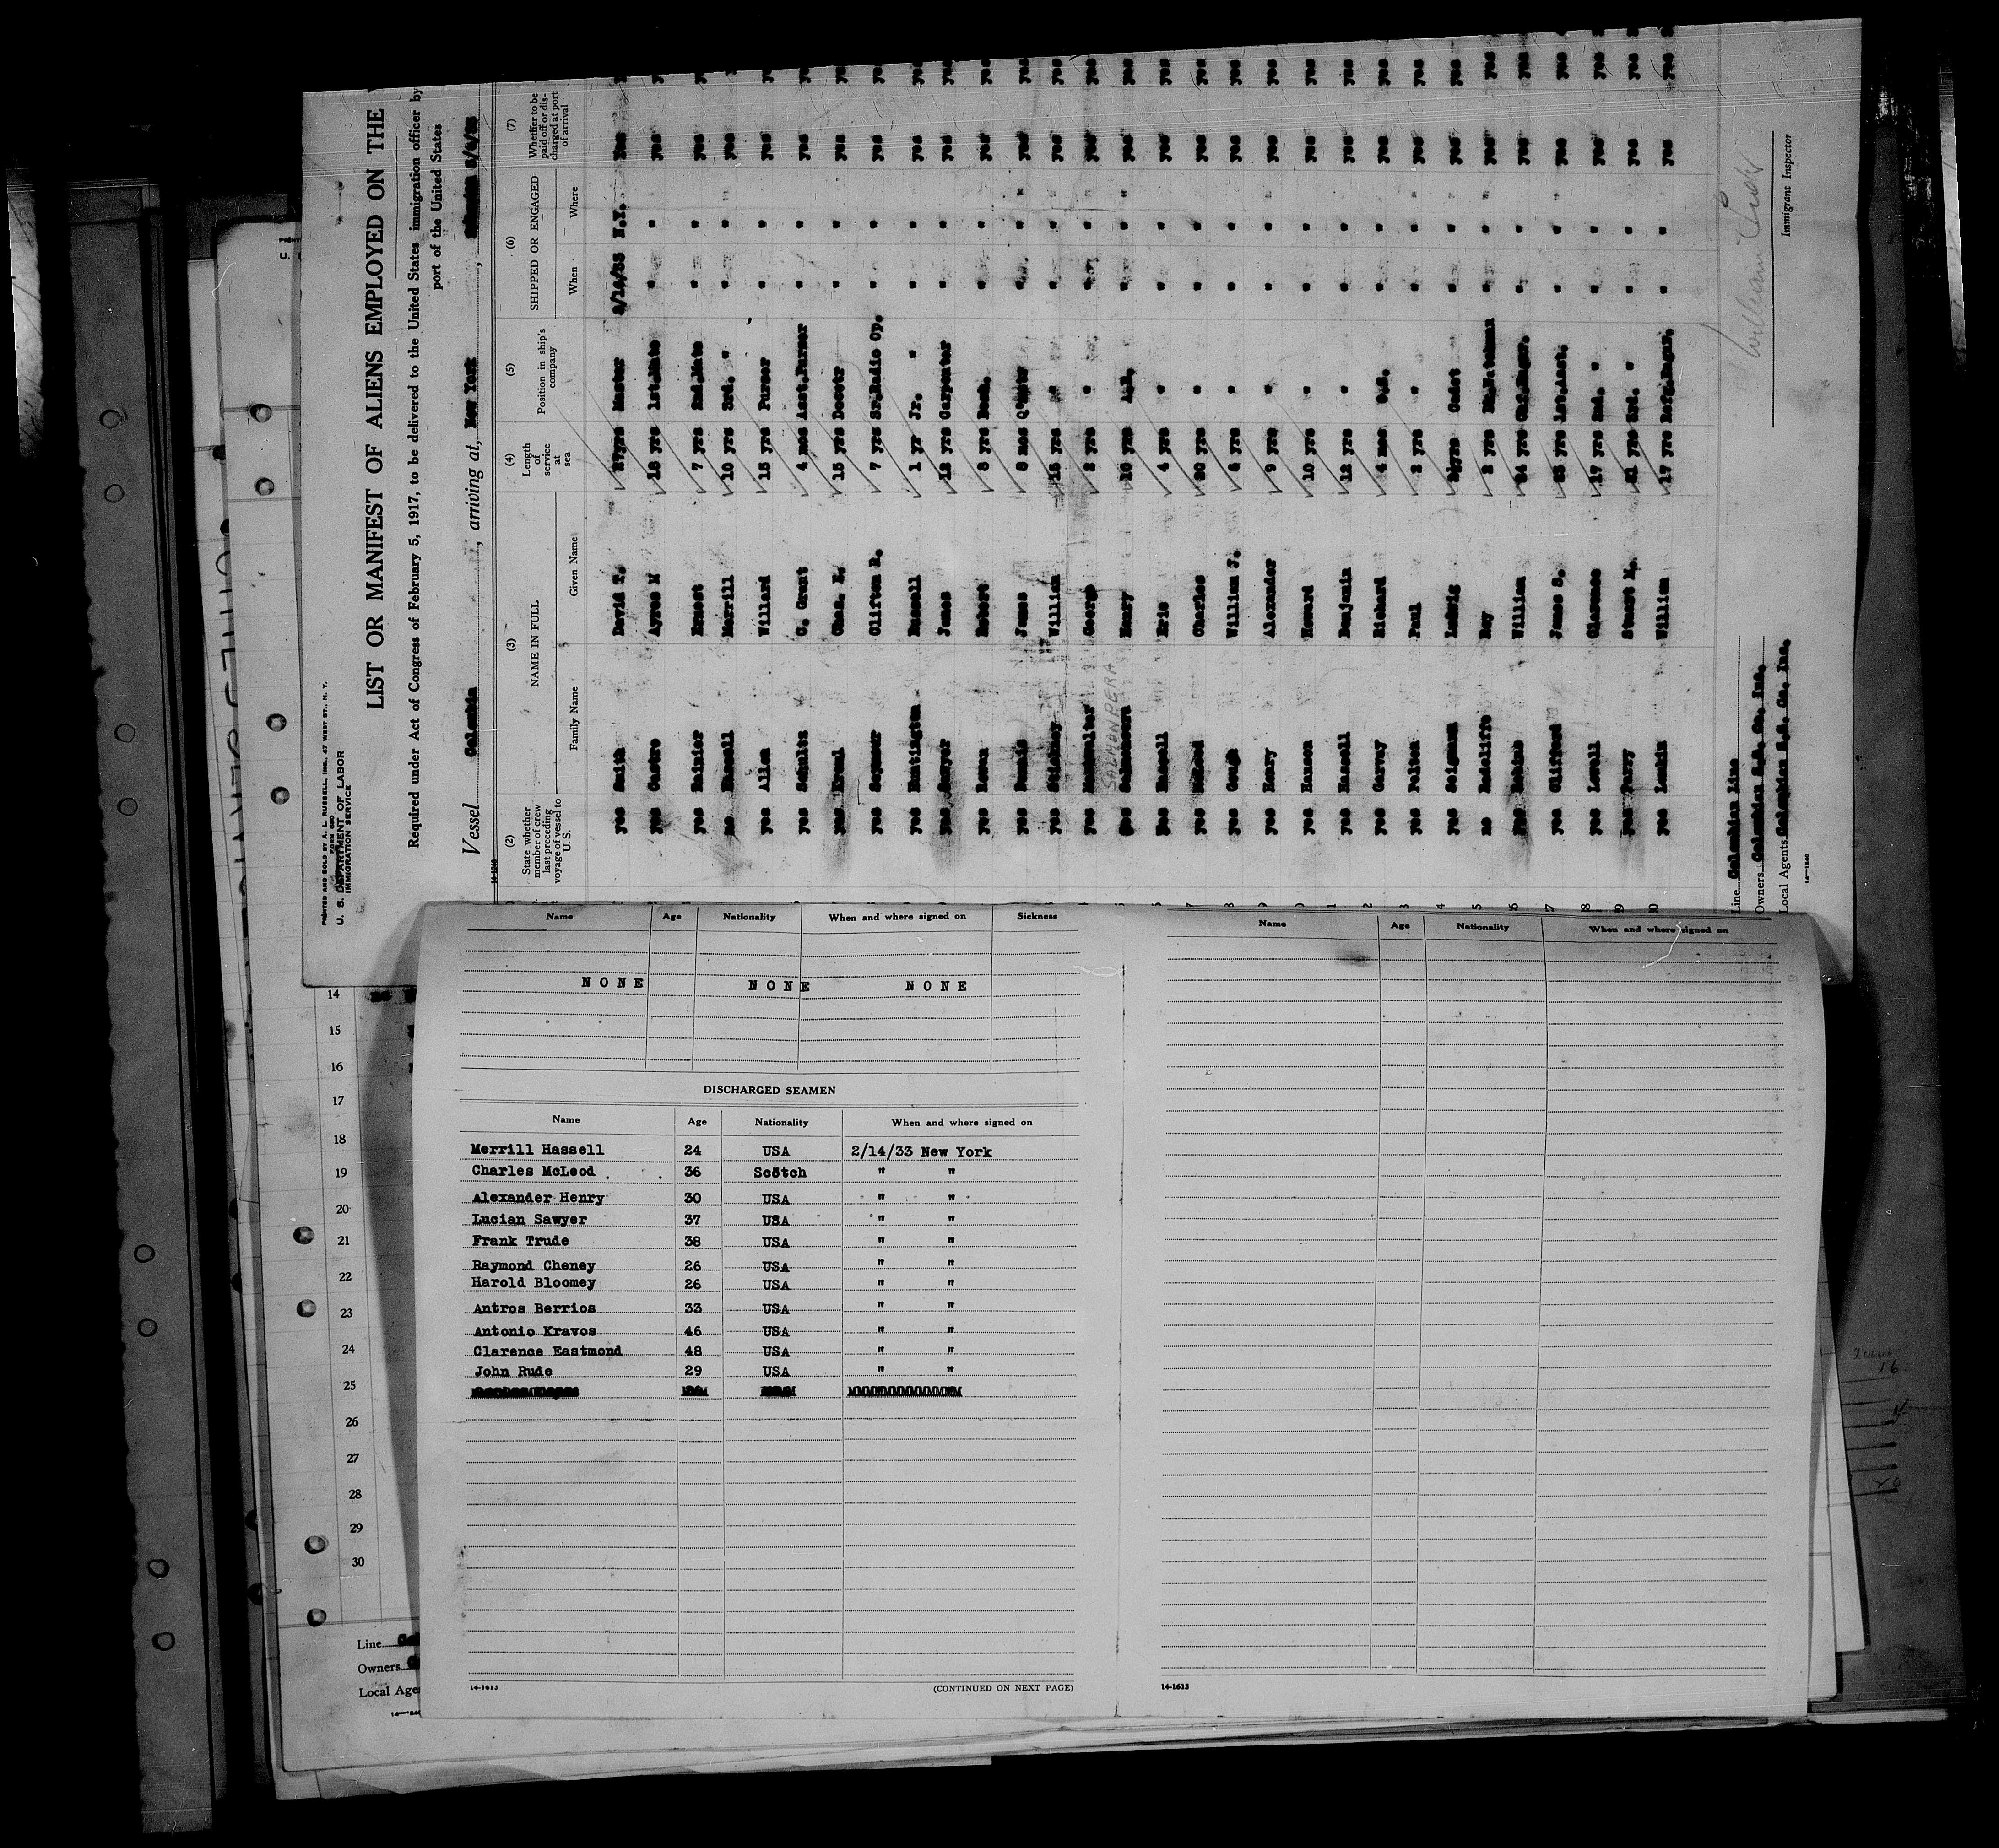 PRINTED AND SOLD BY A. L. RUSSELL, INC., 47 WEST ST., N. Y.
FORM 680
U. S. DEPARTMENT OF LABOR
IMMIGRATION SERVICE
LIST OR MANIFEST OF ALIENS EMPLOYED ON THE
Required under Act of Congress of February 5, 1917, to be delivered to the United States immigration officer by
port of the United States
Vessel Colombia, arriving at, New York,
(2) (3) (4) (5) (6) (7)
State whether member of crew last preceding voyage of vessel to U. S. NAME IN FULL Length of service at sea Position in ship's company SHIPPED OR ENGAGED Whether to be paid off or discharged at port of arrival
Family Name Given Name When Where
yes Smith David T. 27yrs Master 2/14/33 N.Y. yes
yes Castro Ayres M 18 yrs 1st.Mate " " yes yes
yes Rainier Ernest 7 yrs 2nd.Mate " " yes yes
no Hassell Merrill 10 yrs 3rd. " " " yes
yes Allen Willard 15 yrs Purser " " yes
yes Schultz C. Grant 4 mos Asst.Purser " " yes yes
yes Chas. E. 15 yrs Doctr " " yes yes
yes Seymour Clifton R. 7 yrs Sr.Radio Op. " " yes yes
yes Huntington Russell 1 yr Jr. " " " yes yes
yes Sawyer James 12 yrs Carpenter " " yes yes
yes Rowan Robert 8 yrs Bosn. " " yes yes
yes Dennis James 8 mos " " yes yes
yes Stickney William 15 yrs " " " yes yes
yes George 2 yrs " " " yes yes
SALMONPERA
yes Henry 10 yrs A.B. " " yes yes
yes Hassell Eric 4 yrs " " " yes yes
yes McLeod Charles 20 yrs " " " yes yes
yes Gough William J. 6 yrs " " " yes yes
yes Henry Alexander 9 yrs " " " yes yes
yes Hanson Howard 10 yrs " " " yes yes
yes Hassell Benjamin 12 yrs " " " yes yes
yes Garvey Richard 4 mos O.S. " " yes yes
yes Felton Paul 2 yrs " " " yes yes
yes Seignum Ludwig Cadet " " yes yes
no Radcliffe Roy 2 yrs " " yes yes
yes William 24 yrs Chf.Engnr. " " yes yes
yes Clifford James S. 25 yrs 1st.Asst. " " yes yes
yes Lovell Clarence 17 yrs 2nd. " " " yes yes
yes Parry Stuart M. 21 yrs 3rd. " " " yes yes
yes Lankin William 17 yrs Refg.Engnr. " " yes yes
Line Colombian Line
Owners Colombian S.S. Co. Inc.
Local Agents Colombian S.S. Co. Inc.
Immigrant Inspector
Name Age Nationality When and where signed on Sickness
NONE NONE NONE
DISCHARGED SEAMEN
Name Age Nationality When and where signed on
Merrill Hassell 24 USA 2/14/33 New York
Charles McLeod 36 Scotch " "
Alexander Henry 30 USA " "
Lucian Sawyer 37 USA " "
Frank Trude 38 USA " "
Raymond Cheney 26 USA " "
Harold Bloomey 26 USA " "
Antros Berrios 33 USA " "
Antonio Kravos 46 USA " "
Clarence Eastmond 48 USA " "
John Rude 29 USA " "
14-1613
(CONTINUED ON NEXT PAGE)
Name Age Nationality When and where signed on
14-1613
14
15
16
17
18
19
20
21
22
23
24
25
26
27
28
29
30
Line
Owners
Local Age